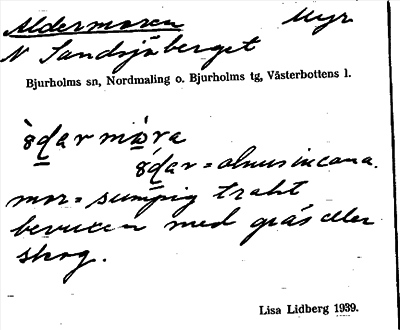 Aldermoren Myr
N Sandsjöberget
Bjurholms sn, Nordmaling o. Bjurholms tg, Västerbottens l.
òdarmòra
ódar = alnus incana.
mor = sumpig trakt
bevuxen med gräs eller
skog.
Lisa Lidberg 1939.